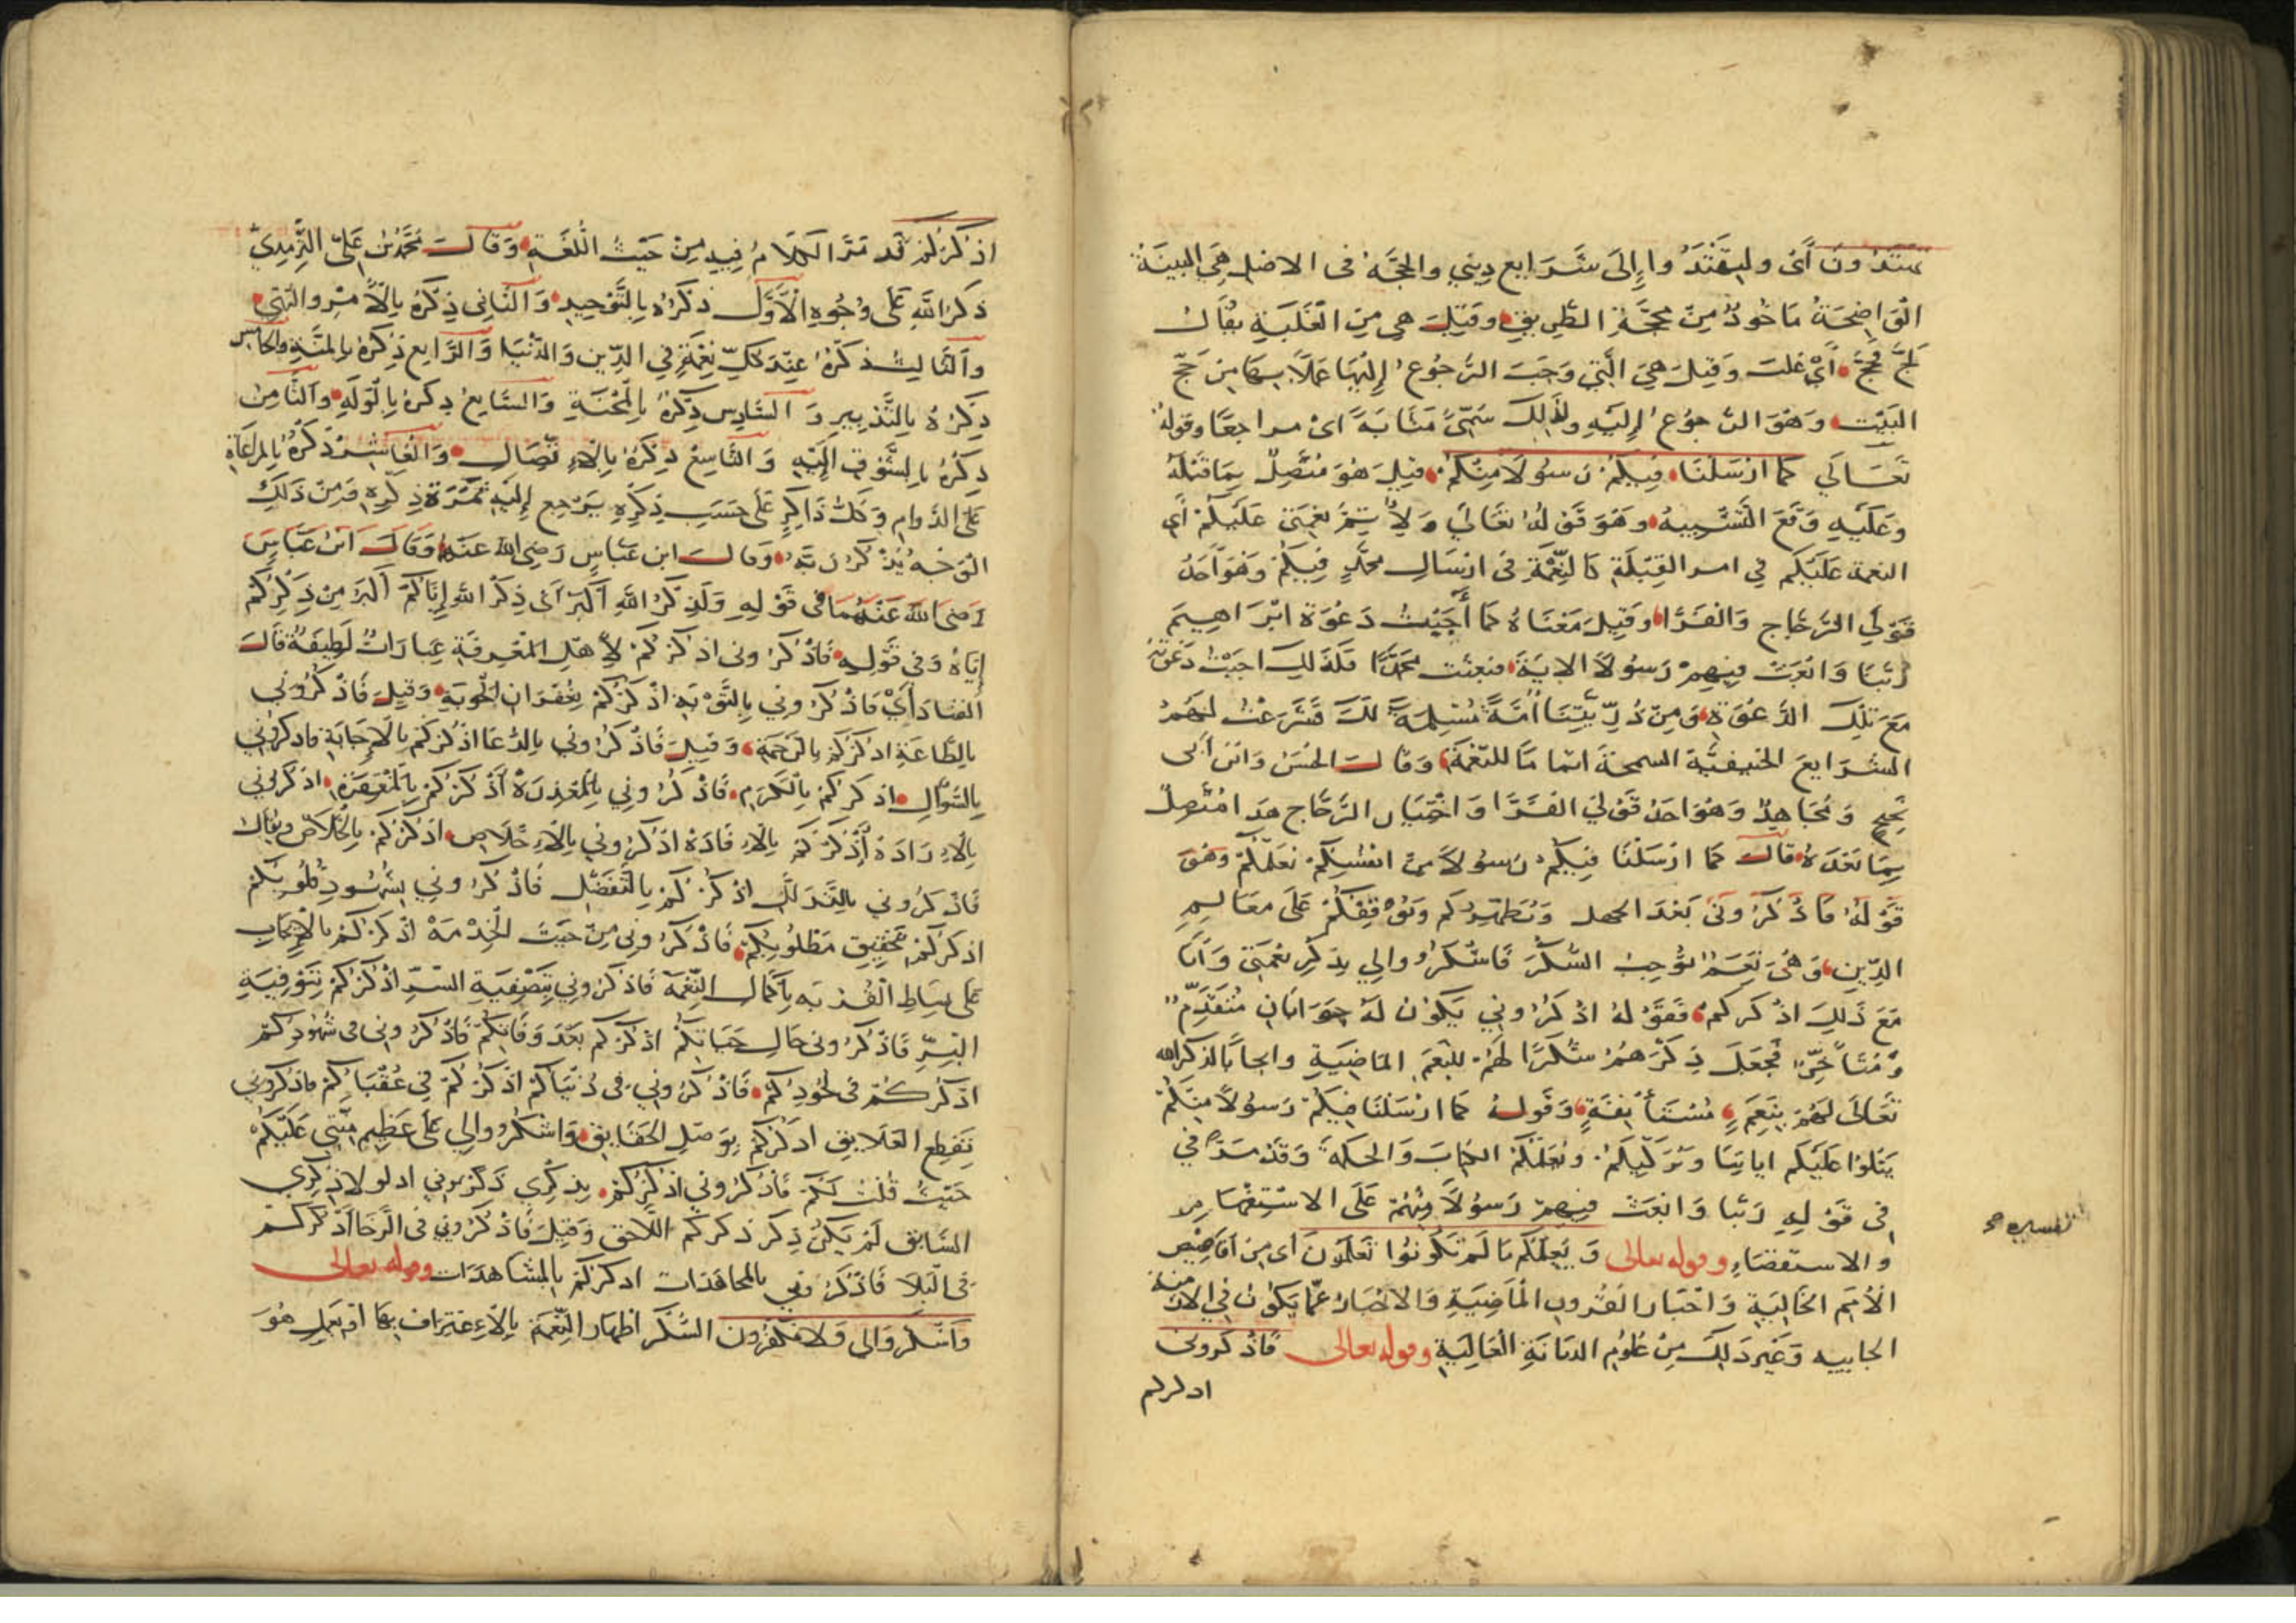 تهتدون أي وليقتدوا إلى شرايع ديني والحجة في الاصل هي البينة
الواضحة ماخوذ من محجة الطريق وقيل هي من الغلبة يقال
لج فحج أي غلب وقيل هي التي وجب الرجوع إليها عملا بها من حج
البيت وهو الرجوع إليه ولذلك سمى مثابة أي مراجعا وقوله
تعالى كما ارسلنا فيكم رسولا منكم قيل هو متصل بما قبله
وعليه وقع التشبيه وهو قوله تعالى ولاتم نعمتي عليكم أي
النعمة عليكم في امر القبلة كالنعمة في ارسال محمد فيكم وهو احد
قولي الزجاج والفرا وقيل معناه كما أجيبت دعوة ابراهيم
ربنا وابعث فيهم رسولا الاية فبعثت محمدا فكذلك اجبت دعوته
مع تلك الدعوة ومن ذريتنا أمة مسلمة لك فشرعت لهم
الشرايع الحنيفية السمحة اتماما للنعمة وقال الحسن وابن أبي
نجيح ومجاهد وهو احد قولي الفرا واختيار الزجاج هذا متصل
بما بعده قال كما ارسلنا فيكم رسولا من انفسكم نعلمكم وهو
قوله فاذكروني بعد الجهل ونطهركم ونوقفكم على معالم
الدين وهي نعم توجب الشكر فاشكروا لي بذكر نعمتي وأنا
مع ذلك اذكركم فقوله اذكروني يكون له جوابان متقدم
ومتأخر فجعل ذكرهم شكرا لهم للنعم الماضية وايجابا لذكر الله
تعالى لهم بنعم مستأنفة وقوله كما ارسلنا فيكم رسولا منكم
يتلوا عليكم اياتنا ويزكيكم ويعلمكم الكتاب والحكمة وقد مر في
تفسيره صح
في قوله ربنا وابعث فيهم رسولا منهم على الاستفهام
والاستقصاء وقوله تعالى ويعلمكم ما لم تكونوا تعلمون أي من أقاصيص
الأمم الخالية واخبار القرون الماضية والاخبار عما يكون في الازمنة
الجاييه وغير ذلك من علوم الديانة العالية وقوله تعالى فاذكروني
اذكركم
اذكركم قد مر الكلام فيه من حيث اللغة وقال محمد بن علي الترمذي
ذكر الله على وجوه الأول ذكره بالتوحيد والثاني ذكره بالأمر والنهي
والثالث ذكره عند كل نعمة في الدين والدنيا والرابع ذكره بالمنة والخامس
ذكره بالتدبير والسادس ذكره بالمحبة والسابع ذكره بالوله والثامن
ذكره بالشوق إليه والتاسع ذكره بالاتصال والعاشر ذكره بالمراعاة
على الدوام وكل ذاكر على حسب ذكره يرجع إليه ثمرة ذكره فمن ذلك
الوجه يذكر ربه وقال ابن عباس رضي الله عنه وقال ابن عباس
رضي الله عنهما في قوله ولذكر الله أكبر أي ذكر الله إياكم أكبر من ذكركم
إياه وفي قوله فاذكروني اذكركم لأهل المعرفة عبارات لطيفة قال
فاذكروني بالتوبة اذكركم بغفران الحوبة وقيل فاذكروني
بالطاعة اذكركم بالرحمة وقيل فاذكروني بالدعا اذكركم بالاجابة فاذكروني
بالسؤال اذكركم بالكرم فاذكروني بالمعذرة أذكركم بالمغفرة اذكروني
بالإرادة أذكركم بالإفادة اذكروني بالإخلاص اذكركم بالخلاص ويقال
فاذكروني بالتذلل اذكركم بالتفضل فاذكروني بشهود قلوبكم
اذكركم بتحقيق مطلوبكم فاذكروني من حيث الخدمة اذكركم بالإيجاب
على بساط القربة بإكمال النعمة فاذكروني بتصفية السر اذكركم بتوفية
البر فاذكروني حال حياتكم اذكركم بعد وفاتكم فاذكروني في شهودكم
اذكركم في لحودكم فاذكروني في دنياكم اذكركم في عقباكم فاذكروني
بقطع العلايق اذكركم بوصل الحقايق واشكروا لي على عظيم منتي عليكم
حيث قلت لكم فاذكروني اذكركم بذكري ذكرتموني اذ لولا ذكري
السابق لم يكن ذكر ذكركم اللاحق وقيل فاذكروني في الرخا أذكركم
في البلا فاذكروني بالمجاهدات اذكركم بالمشاهدات وقوله تعالى
واشكروا لي ولا تكفرون الشكر اظهار النعمة بالاعتراف بها أو بعمل هو